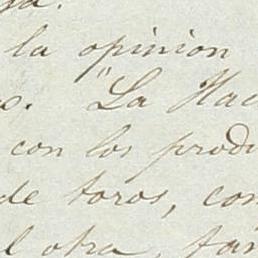 la opinion
"La Hac
con los produ
de toros, con
l otra, tan